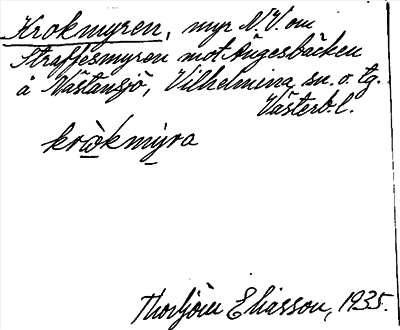 Krokmyren, myr N.V. om
Straffesmyren mot Ångesbäcken
å Nästansjö, Vilhelmina sn. o. tg.
Västerb. l.
krωkmyra
Thorbjörn Eliasson, 1935.